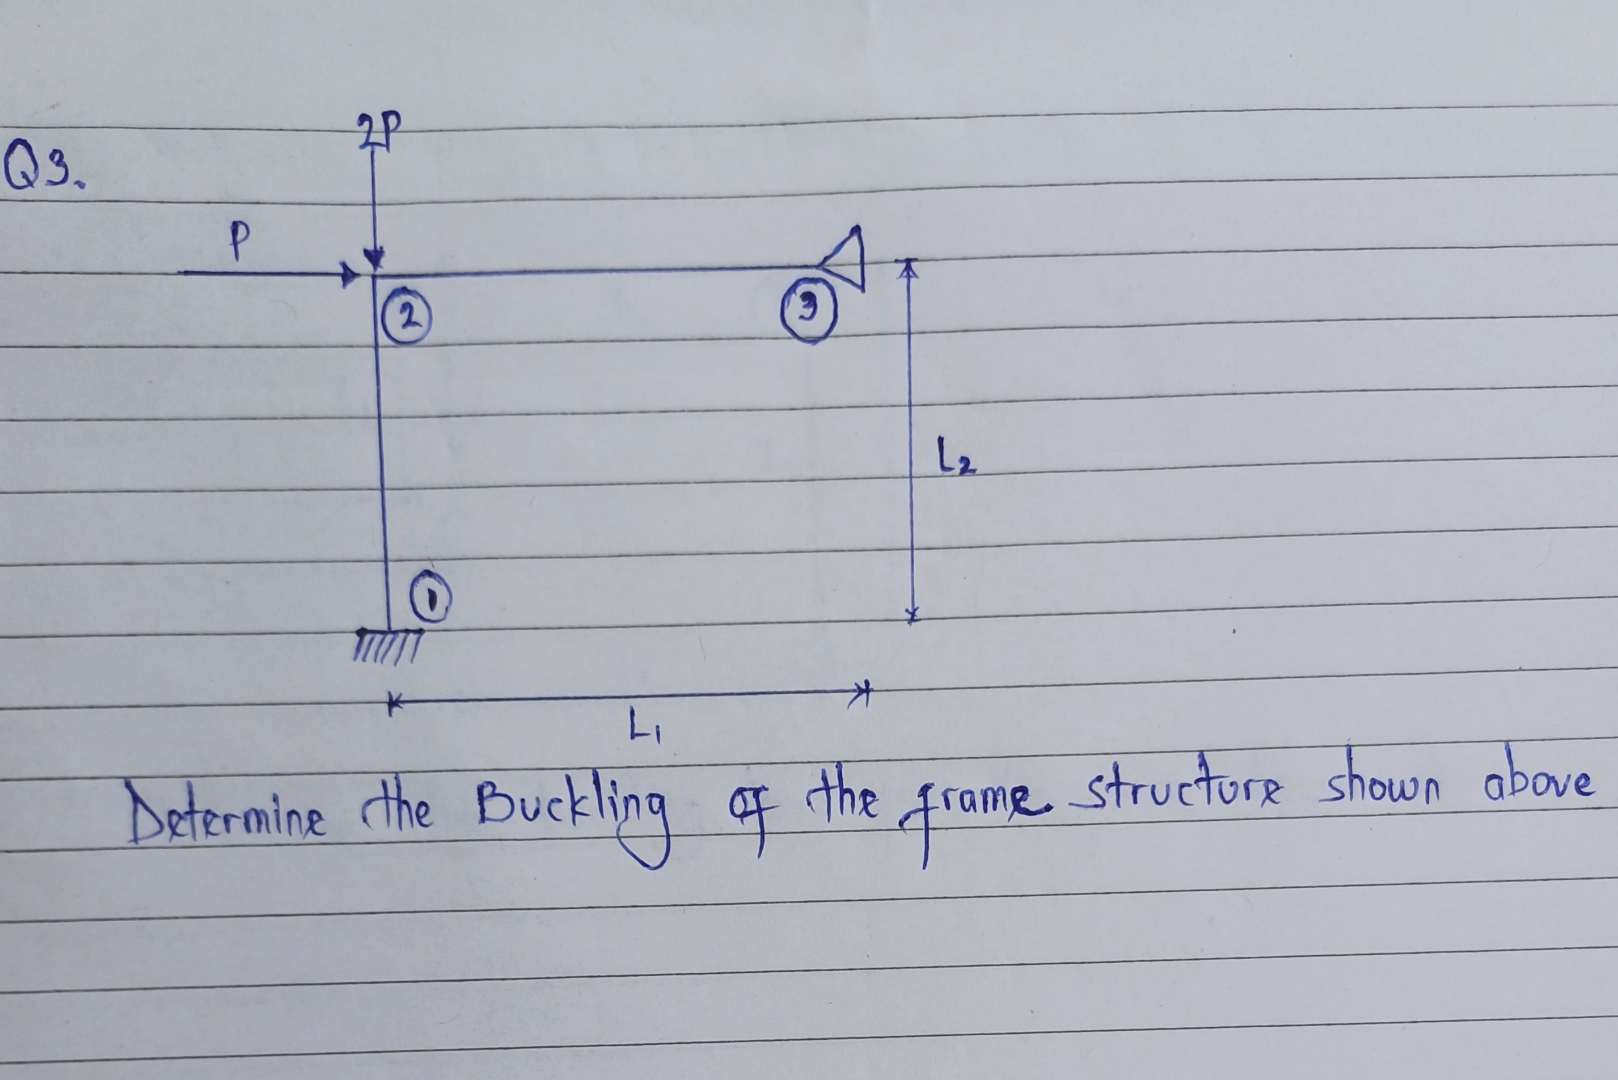 2P
Q3.
P
2
3
L2
1
L1
Determine the Buckling of the frame structure shown above